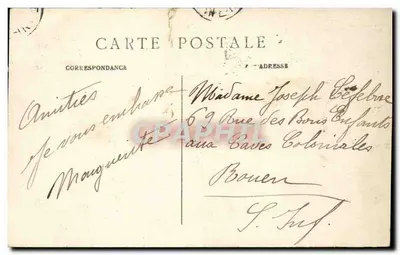 CARTE POSTALE
CORRESPONDANCE
ADRESSE
Amitiés
Je vous embrasse
Marguerite
Madame Joseph Lefebvre
69 Rue des Bons Enfants
aux Caves Coloniales
Rouen
S. Inf.